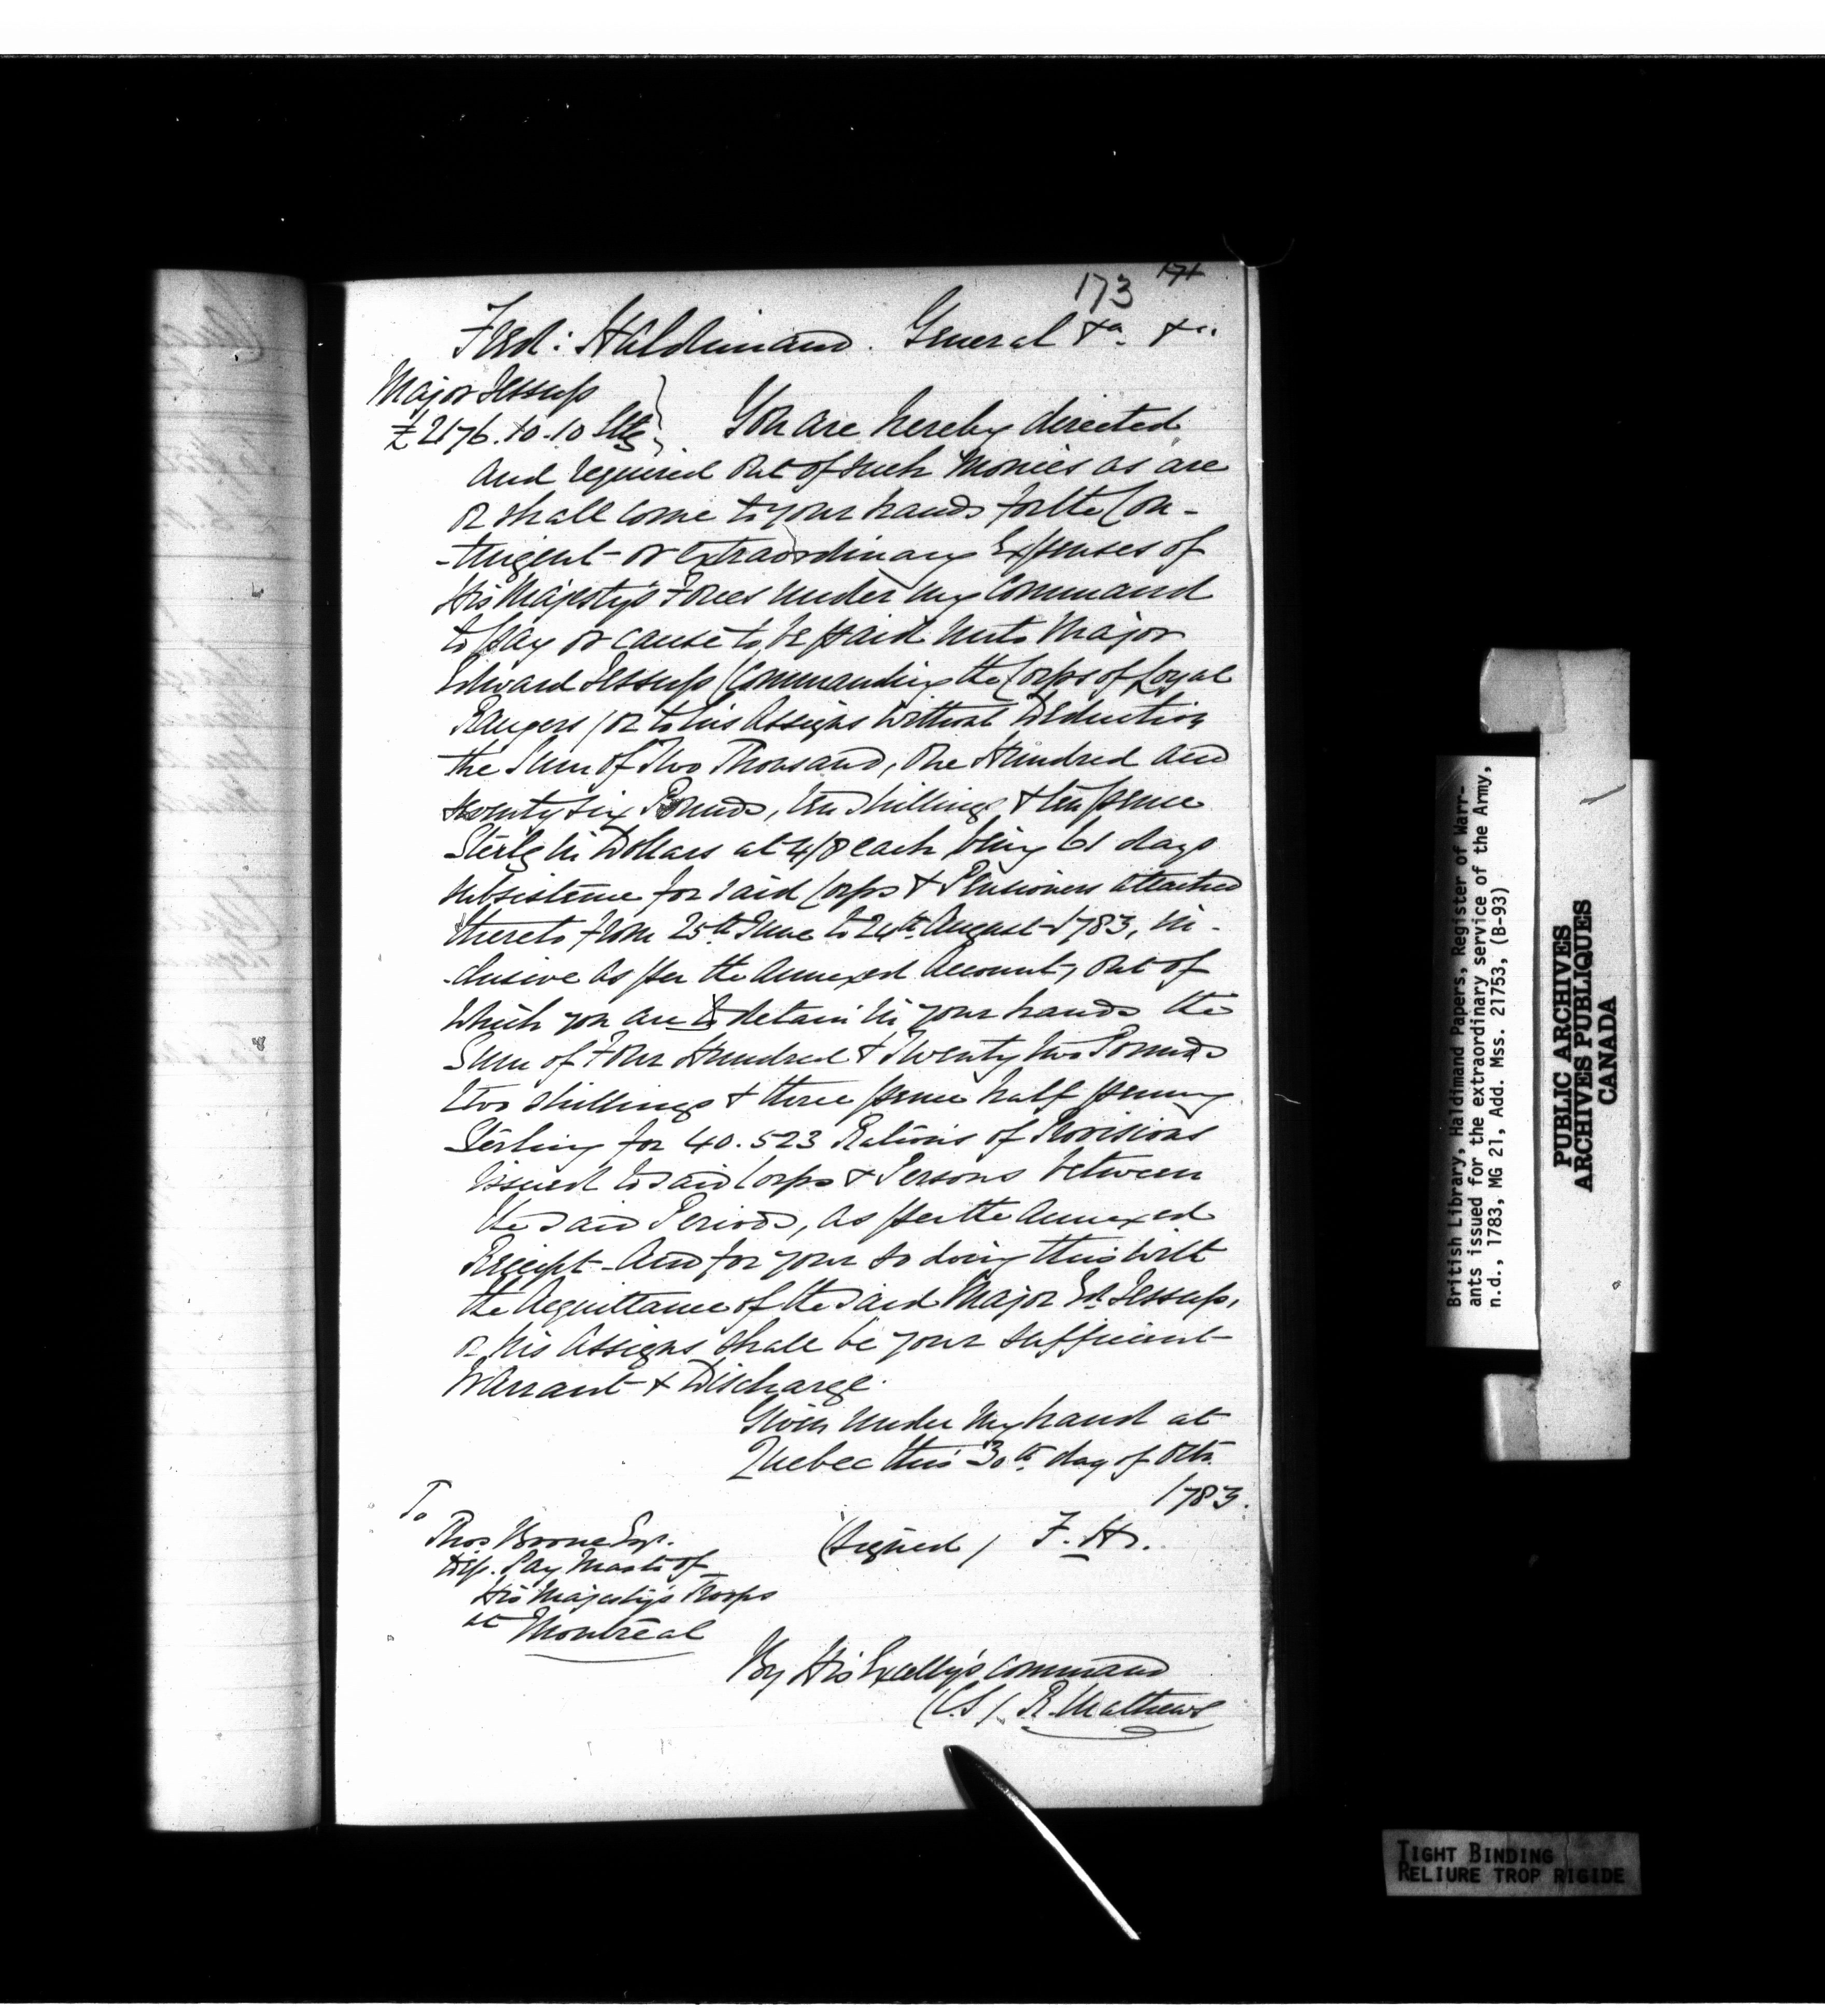 173 171
Ferd: Haldimand. General &a. &c.
Major Jessup
£2176.10.10 Stg
You are hereby directed
and required out of such Monies as are
or shall come to your hands for the Con-
-tingent or extraordinary Expenses of
His Majesty's Forces under my Command
to pay or cause to be paid unto Major
Edward Jessup (Commanding the Corps of Loyal
Rangers) or to his Assigns without Deduction
the Sum of Two Thousand, One Hundred and
seventy six Pounds, ten shillings & ten pence
Sterlg in Dollars at 4/8 each being 61 days
subsistence for said Corps & Pensioners attached
thereto from 25th June to 24th August 1783, in-
-clusive as per the annexed Account, out of
which you are to detain in your hands the
Sum of Four Hundred & Twenty two Pounds
two shillings & three pence half penny
Sterling for 40.523 Rations of Provisions
issued to said Corps & Persons between
the said Periods, as per the annexed
Receipt - And for your so doing this with
the Acquittance of the said Major Ed. Jessup,
or his Assigns shall be your sufficient
Warrant & Discharge.
Given under my hand at
Quebec this 30th day of Octr.
1783.
(signed) F. H.
To
Thos Boone Esqr.
Dep. Pay Mastr of
His Majesty's Troops
at Montreal
By His Excelly's Command
(C.S). R. Mathews
British Library, Haldimand Papers, Register of Warr-
ants issued for the extraordinary service of the Army,
n.d., 1783, MG 21, Add. Mss. 21753, (B-93)
PUBLIC ARCHIVES
ARCHIVES PUBLIQUES
CANADA
TIGHT BINDING
RELIURE TROP RIGIDE